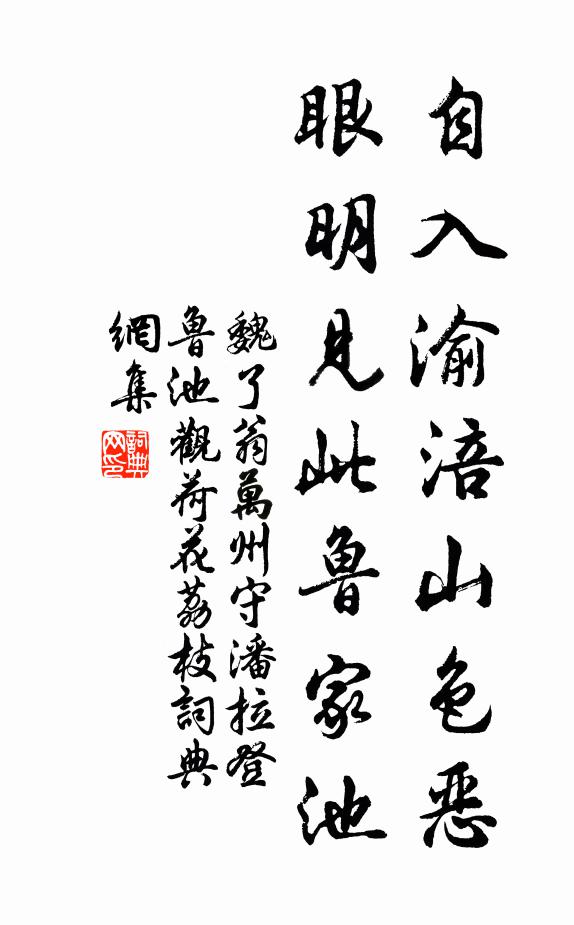 自入渝涪山色惡
眼明見此魯家池
魏了翁萬州守潘拉登
魯池觀荷花荔枝詞典
網集
詞典
网印